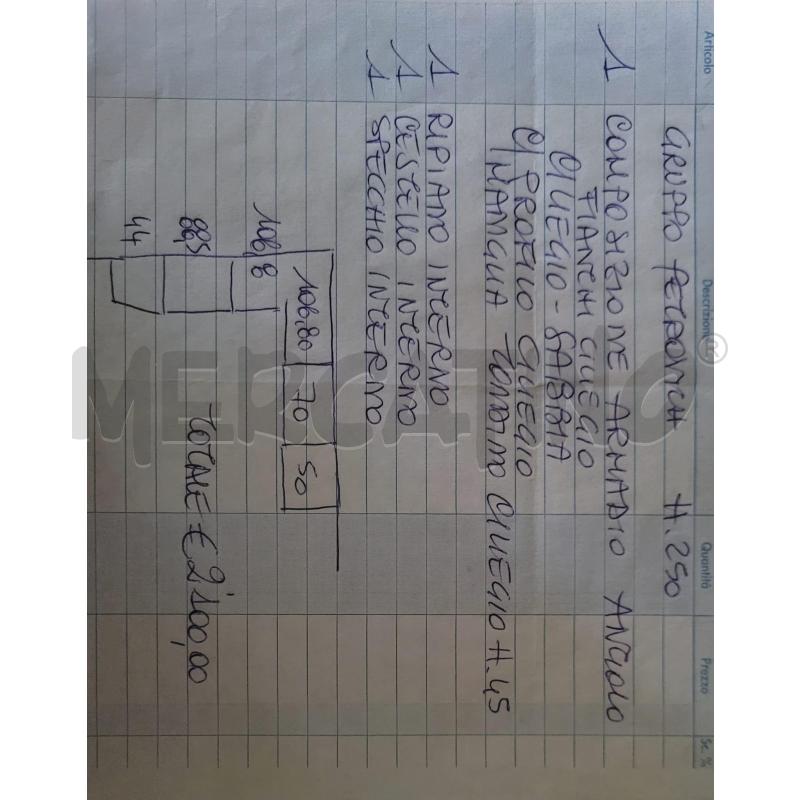 Articolo Descrizione Quantità Prezzo Sc. %
GRUPPO PETROVICH H. 250
1 COMPOSIZIONE ARMADIO ANGOLO
FIANCHI CILIEGIO
CILIEGIO - SABBIA
C/ PROFILO CILIEGIO
MANIGLIA TONDINO CILIEGIO H.45
1 RIPIANO INTERNO
1 CESTELLO INTERNO
1 SPECCHIO INTERNO
106,80 70 50
106,8
88,5
44
TOTALE € 2'100,00
MERCATINO ®